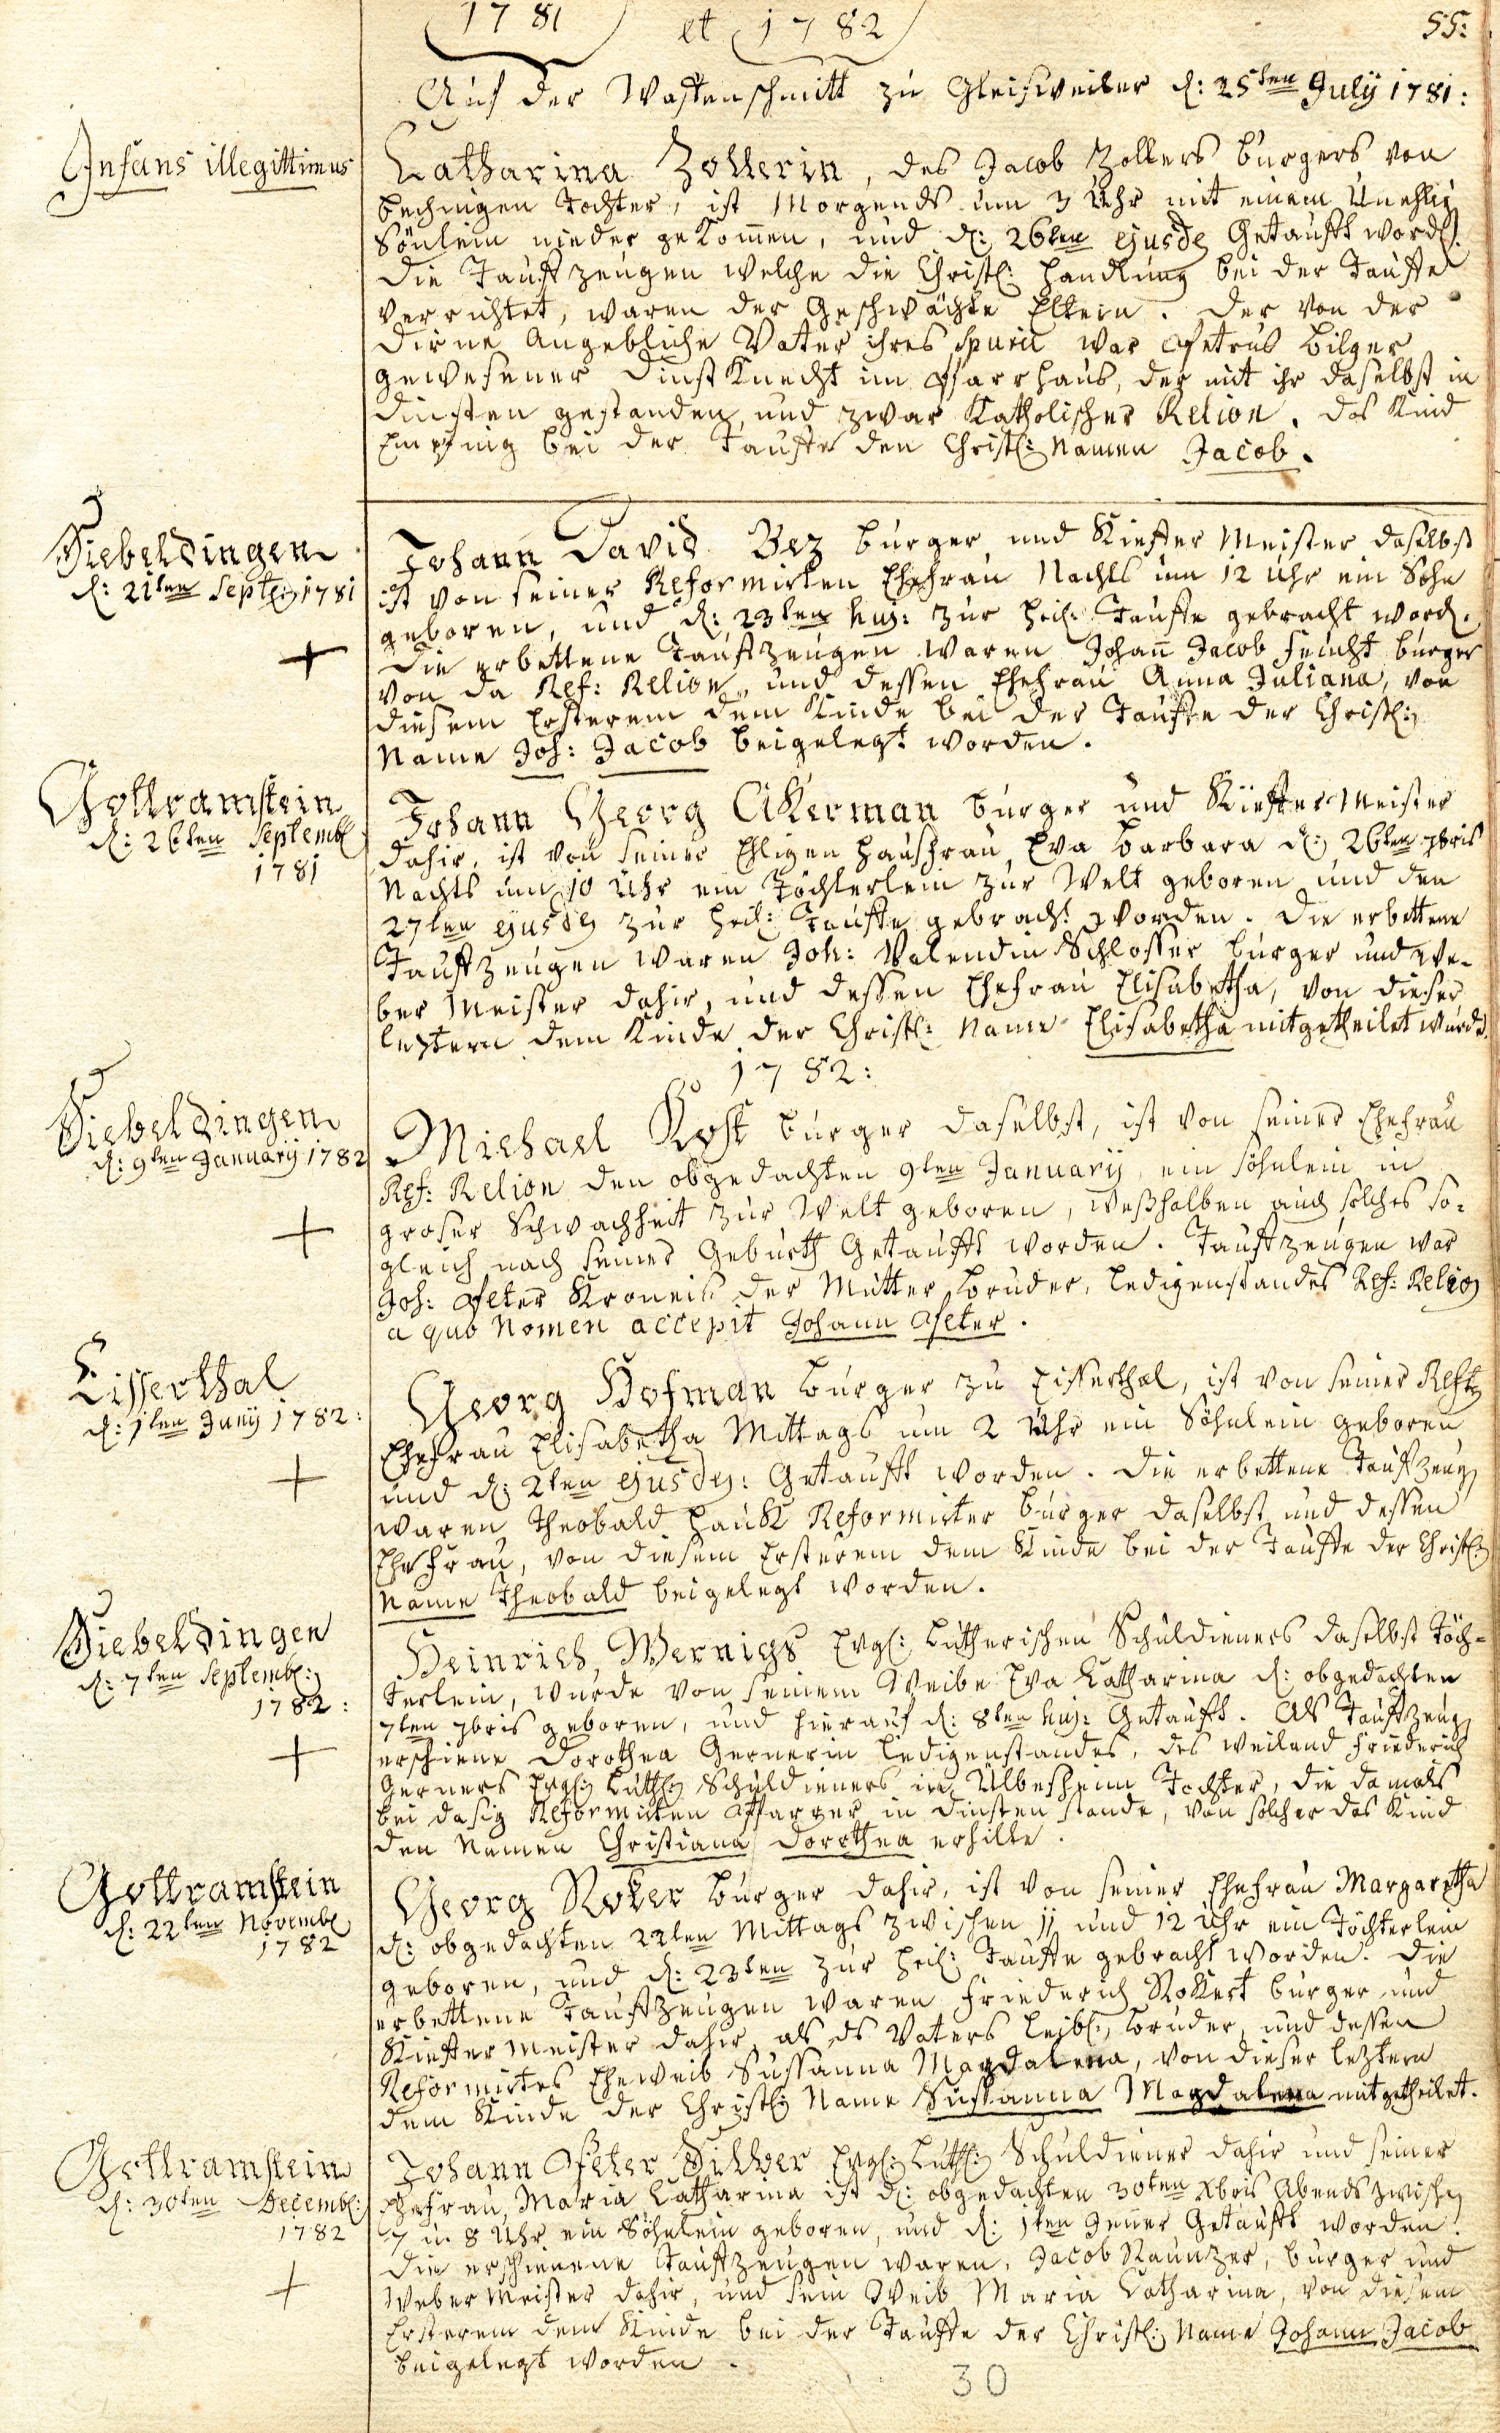 1781 et 1782
55:
Auf der Waffenschmitt zu Gleisweiler d: 25ten July 1781:
Infans illegittimus
Catharina Zollerin, des Jacob Zollers burgers von
bechingen Tochter, ist Morgends um 3 Uhr mit einem Unehlig
Sönlein nieder gekom̅en, und d: 26ten ejusde Getaufft word.
Die Tauffzeugen welche die Christl: Handlung bei der Tauffe
verrichtet, waren der Geschwächte Eltern. Der von der
Dirne Angebliche Vater ihres Spurii war Petrus Bilger
gewesener Dinst Knecht im Pfarrhaus, der mit ihr daselbst in
Dinsten gestanden und zwar Katholischer Relion. Das Kind
Empfing bei der Tauffe den Christl: Namen Jacob.
Siebeldingen
d: 21ten Septe 1781
Johann David Bez burger und Kieffer Meister daselbst
ist von seiner Reformirten Ehefrau Nachts um 12 Uhr ein Sohn
geboren, und d: 23ten huj: zur heil: Tauffe gebracht word.
Die erbettene Tauffzeugen waren Johan̅ Jacob Feucht burger
von da Ref: Relion, und dessen Ehefrau Anna Juliana, von
diesem Ersterem dem Kinde bei der Tauffe der Christl:
Name Joh: Jacob beigelegt worden.
Gottramstein
d: 26ten Septembl
1781
Johann Georg Akerman burger und Kieffer Meister
dahir, ist von seiner Ehligen Hausfrau Eva Barbara d: 26ten 7bris
Nachts um 10 Uhr ein Töchterlein zur Welt geboren und den
27ten ejusde zur heil: Tauffe gebracht worden. Die erbettene
Tauffzeugen waren Joh: Valendin Schlosser burger und We-
ber Meister dahir, und dessen Ehefrau Elisabetha, von dieser
leztern dem Kinde der Christl: Name Elisabetha mitgetheilet wurde.
1782:
Siebeldingen
d: 9ten Januarij 1782
Michael Kost burger daselbst, ist von seiner Ehefrau
Ref: Relion den obgedachten 9ten Januarij, ein söhnlein in
groser Schwachheit zur Welt geboren, weßhalben auch solches so-
gleich nach seiner Geburth Getaufft worden. Tauffzeugen war
Joh: Peter Kroneis der Mutter Bruder, ledigenstandes Ref: Relio
a quo Nomen accepit Johann Peter.
Eisserthal
d: 1ten Junij 1782:
Georg Hofman Burger zu Eisserthal, ist von seiner Reft
Ehefrau Elisabetha Mittags um 2 Uhr ein Söhnlein geboren
und d: 2ten ejusde: Getaufft worden. Die erbettene Tauffzeug
waren Theobald Hauk Reformirter Burger daselbst und dessen
Ehefrau, von diesem Ersterem dem Kinde bei der Tauffe der Christl:
Name Theobald beigelegt worden.
Siebeldingen
d: 7ten Septembl:
1782:
Heinrich Wernigs Evgl: Lutherischen Schuldieners daselbst Töch-
terlein, wurde von seinem Weibe Eva Catharina d: obgedachten
7ten 7bris geboren, und hierauf d: 8ten huj: Getaufft. Als Tauffzeug
erschiene Dorothea Gernerin ledigenstandes, des weiland Friederich
Gerners Evgl: Luthl: Schuldieners in Ülbesheim Tochter, die damals
bei dasig Reformirten Pfarrer in Dinsten stande, von solcher das Kind
den Namen Christiana Dorothea erhilte.
Gottramstein
d: 22ten Novembl
1782
Georg Roker Burger dahir, ist von seiner Ehefrau Margaretha
d: obgedachten 22ten Mittags zwischen 11 und 12 Uhr ein Töchterlein
geboren, und d: 23ten zur heil: Tauffe gebracht worden. Die
erbettene Tauffzeugen waren Friederich Rokert burger und
Kieffer Meister dahir als ds Vaters leibl: Bruder, und dessen
Reformirtes Eheweib Sussanna Magdalena, von dieser leztern
dem Kinde der Christl: Name Sussanna Magdalena mitgetheilet.
Gottramstein
d: 30ten Decembl:
1782
Johann Peter Silber Evgl: Luthl: Schuldiener dahir und seiner
Ehefrau, Maria Catharina ist d: obgedachten 30ten Xbris Abends zwische
7 u. 8 Uhr ein Söhnlein geboren, und d: 1ten Jener Getaufft worden.
Die erschienene Tauffzeugen waren, Jacob Naunzer, burger und
Weber Meister dahir, und sein Weib Maria Catharina, von diesem
Ersterem dem Kinde bei der Tauffe der Christl: Name Johann Jacob
beigelegt worden.
30